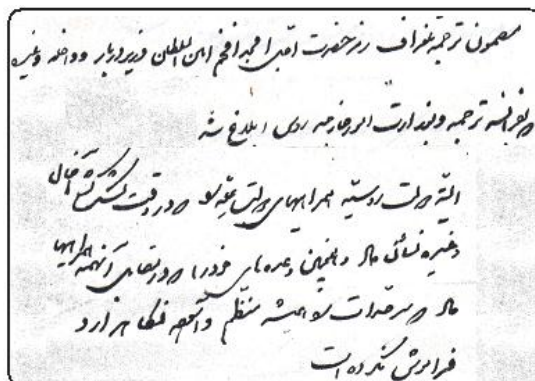 مضمون ترجمه تلغراف رمز حضرت اقدس امجد افخم امین السلطان وزیر دربار و داخله و غیره
بفرانسه ترجمه و بوزارت امور خارجه روس ابلاغ شد
البته دولت روسیه همراهیهای دولت علیه را در وقت لشکرکشی آخال
و غیره نسبت بما و همچنین وعده‌های خود را در تقابل آنهمه همراهیها
ما در سرحدات را همیشه منظم و آسوده نگاه دارد
فراموش نکرده است